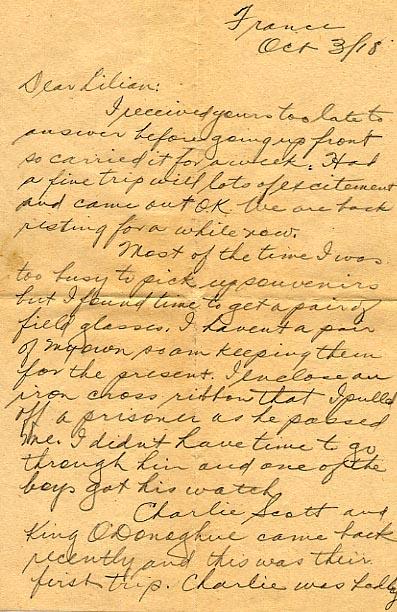 France
Oct 3/18
Dear Lilian:
I received yours too late to
answer before going up front
so carried it for a week. Had
a fine trip with lots of excitement
and came out O.K. We are back
resting for a while now.
Most of the time I was
too busy to pick up souvenirs
but I found time to get a pair of
field glasses. I havent a pair
of my own so am keeping them
for the present. I enclose an
iron cross ribbon that I pulled
off a prisoner as he passed
me. I didnt have time to go
through him and one of the
boys got his watch
Charlie Scott and
King O'Donoghue came back
recently and this was their
first trip. Charlie was badly